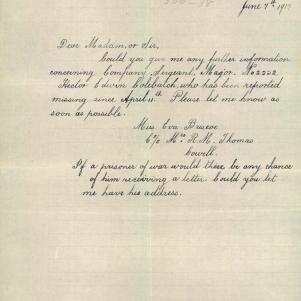 June 7th 1917
Dear Madam, or Sir,
Could you give me any further information
concerning Company Sergeant, Magor. No 2222
Hector Edwin Colebatch, who has been reported
missing since April 11th Please let me know as
soon as possible.
Miss Eva Briscoe
C/o Mrs R. M. Thomas
Cowell.
If a prisoner of war would there be any chance
of him receiving a letter. Could you let
me have his address.